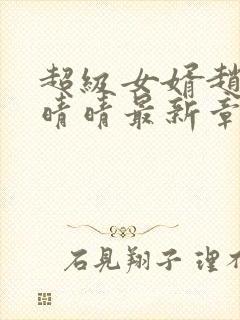 超級女婿趙
晴晴最新章
石見翔子 理不